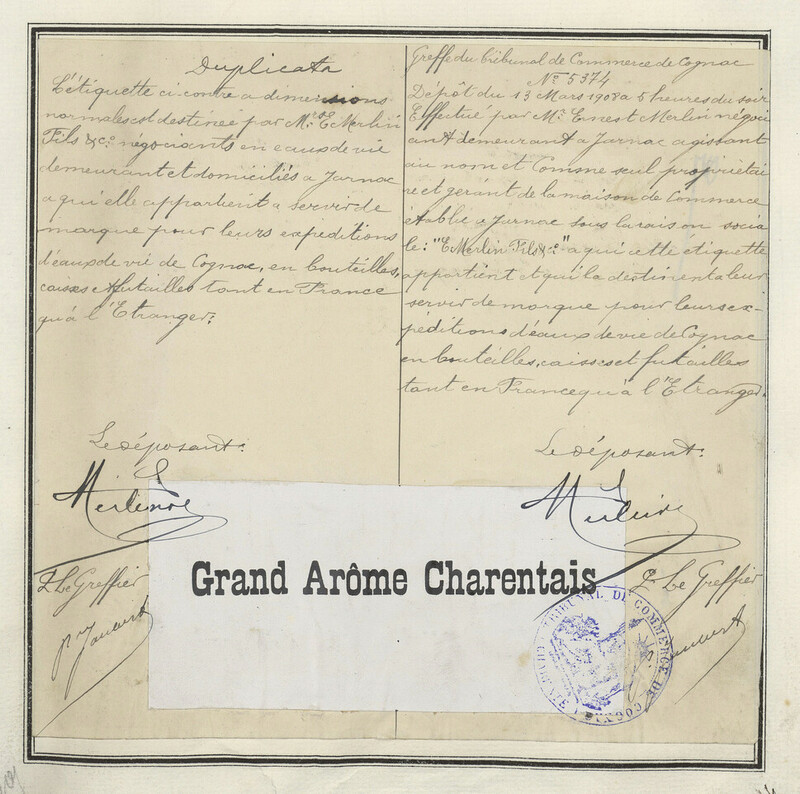 Duplicata
L'étiquette ci-contre a dimensions
normales est destinée par Mrs E. Merlin
Fils & Co négociants en eaux de vie
demeurant et domiciliés a Jarnac
a qui elle appartient a servir de
marque pour leurs expéditions
d'eaux de vie de Cognac, en bouteilles,
caisses & futailles tant en France
qu'à l'Etranger.
Le déposant:
Merlin
P. Le Greffier
Greffe du tribunal de Commerce de Cognac
No 5374
Dépôt du 13 Mars 1908 a 5 heures du soir
Effectué par Mr. Ernest Merlin négoci
ant demeurant a Jarnac agissant
au nom et Comme seul propriétai
re et gérant de la maison de Commerce
établie a Jarnac sous la raison socia
le: "E. Merlin Fils & Co" a qui cette étiquette
appartient et qui la destinent a leur
servir de marque pour leurs ex-
péditions d'eaux de vie de Cognac
en bouteilles, caisses et futailles
tant en France qu'à l'Etranger.
Le déposant:
Merlin
P. Le Greffier
Grand Arôme Charentais
TRIBUNAL DE COMMERCE DE COGNAC